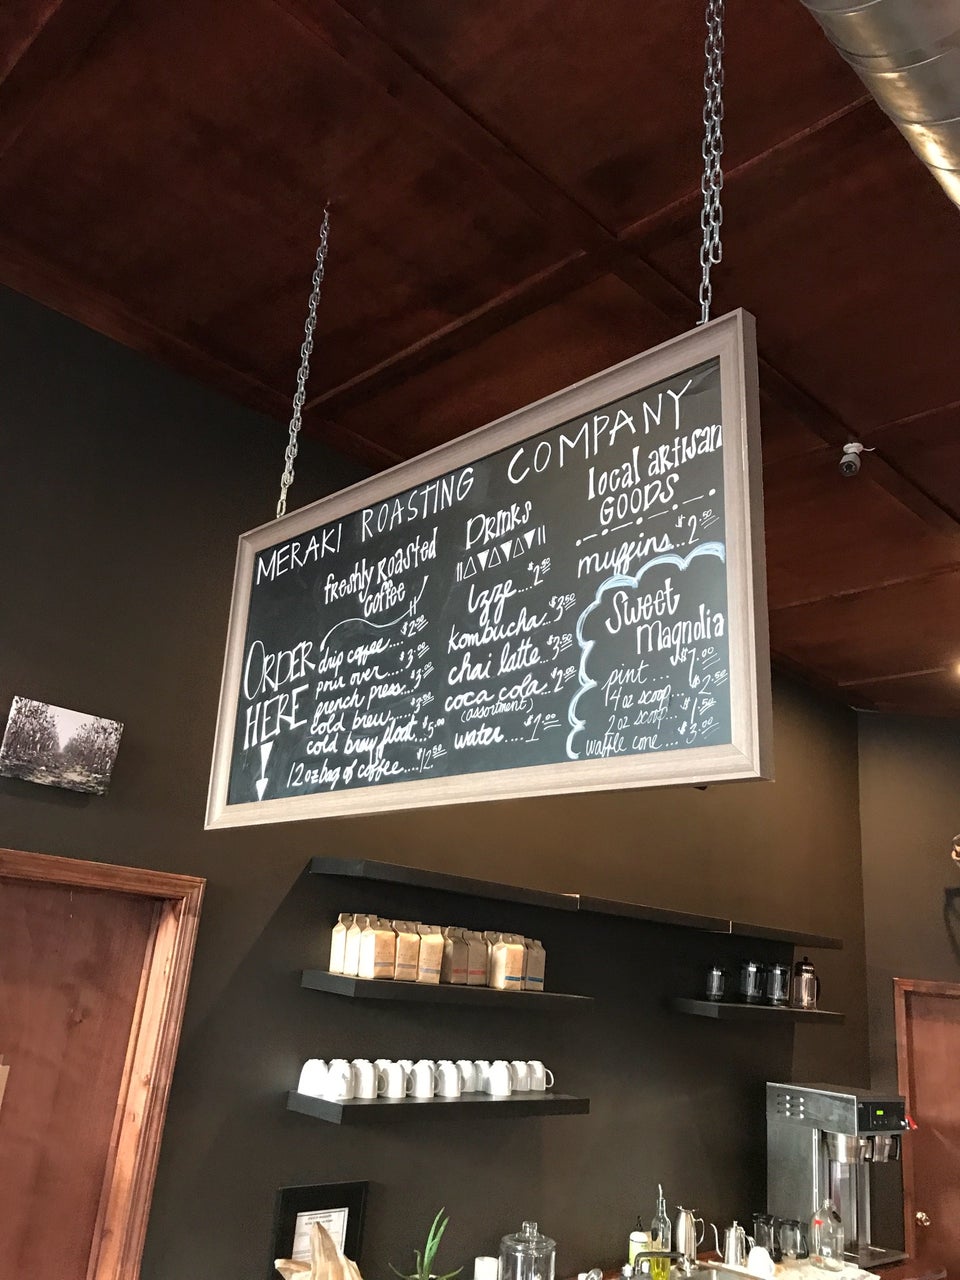 MERAKI ROASTING COMPANY
freshly Roasted
coffee
ORDER
HERE
drip coffee.... $2.50
pour over.... $3.00
french press... $3.00
cold brew... $3.50
cold brew float... $5.00
12 oz bag of coffee.... $12.50
DRINKS
Izze.... $2.50
kombucha.. $3.50
chai latte... $3.50
coca cola.. $2.00
(assortment)
water.... $1.00
local artisan
GOODS
muffins.. $2.50
Sweet
Magnolia
pint.... $7.00
4 oz scoop... $2.50
2 oz scoop... $1.50
waffle cone... $3.00